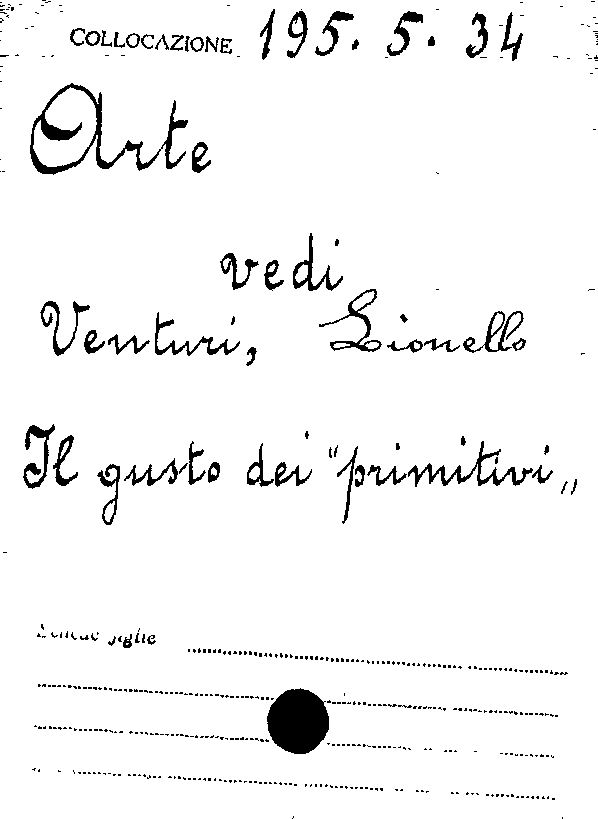 COLLOCAZIONE 195. 5. 34
Arte
vedi
Venturi, Lionello
Il gusto dei "primitivi„